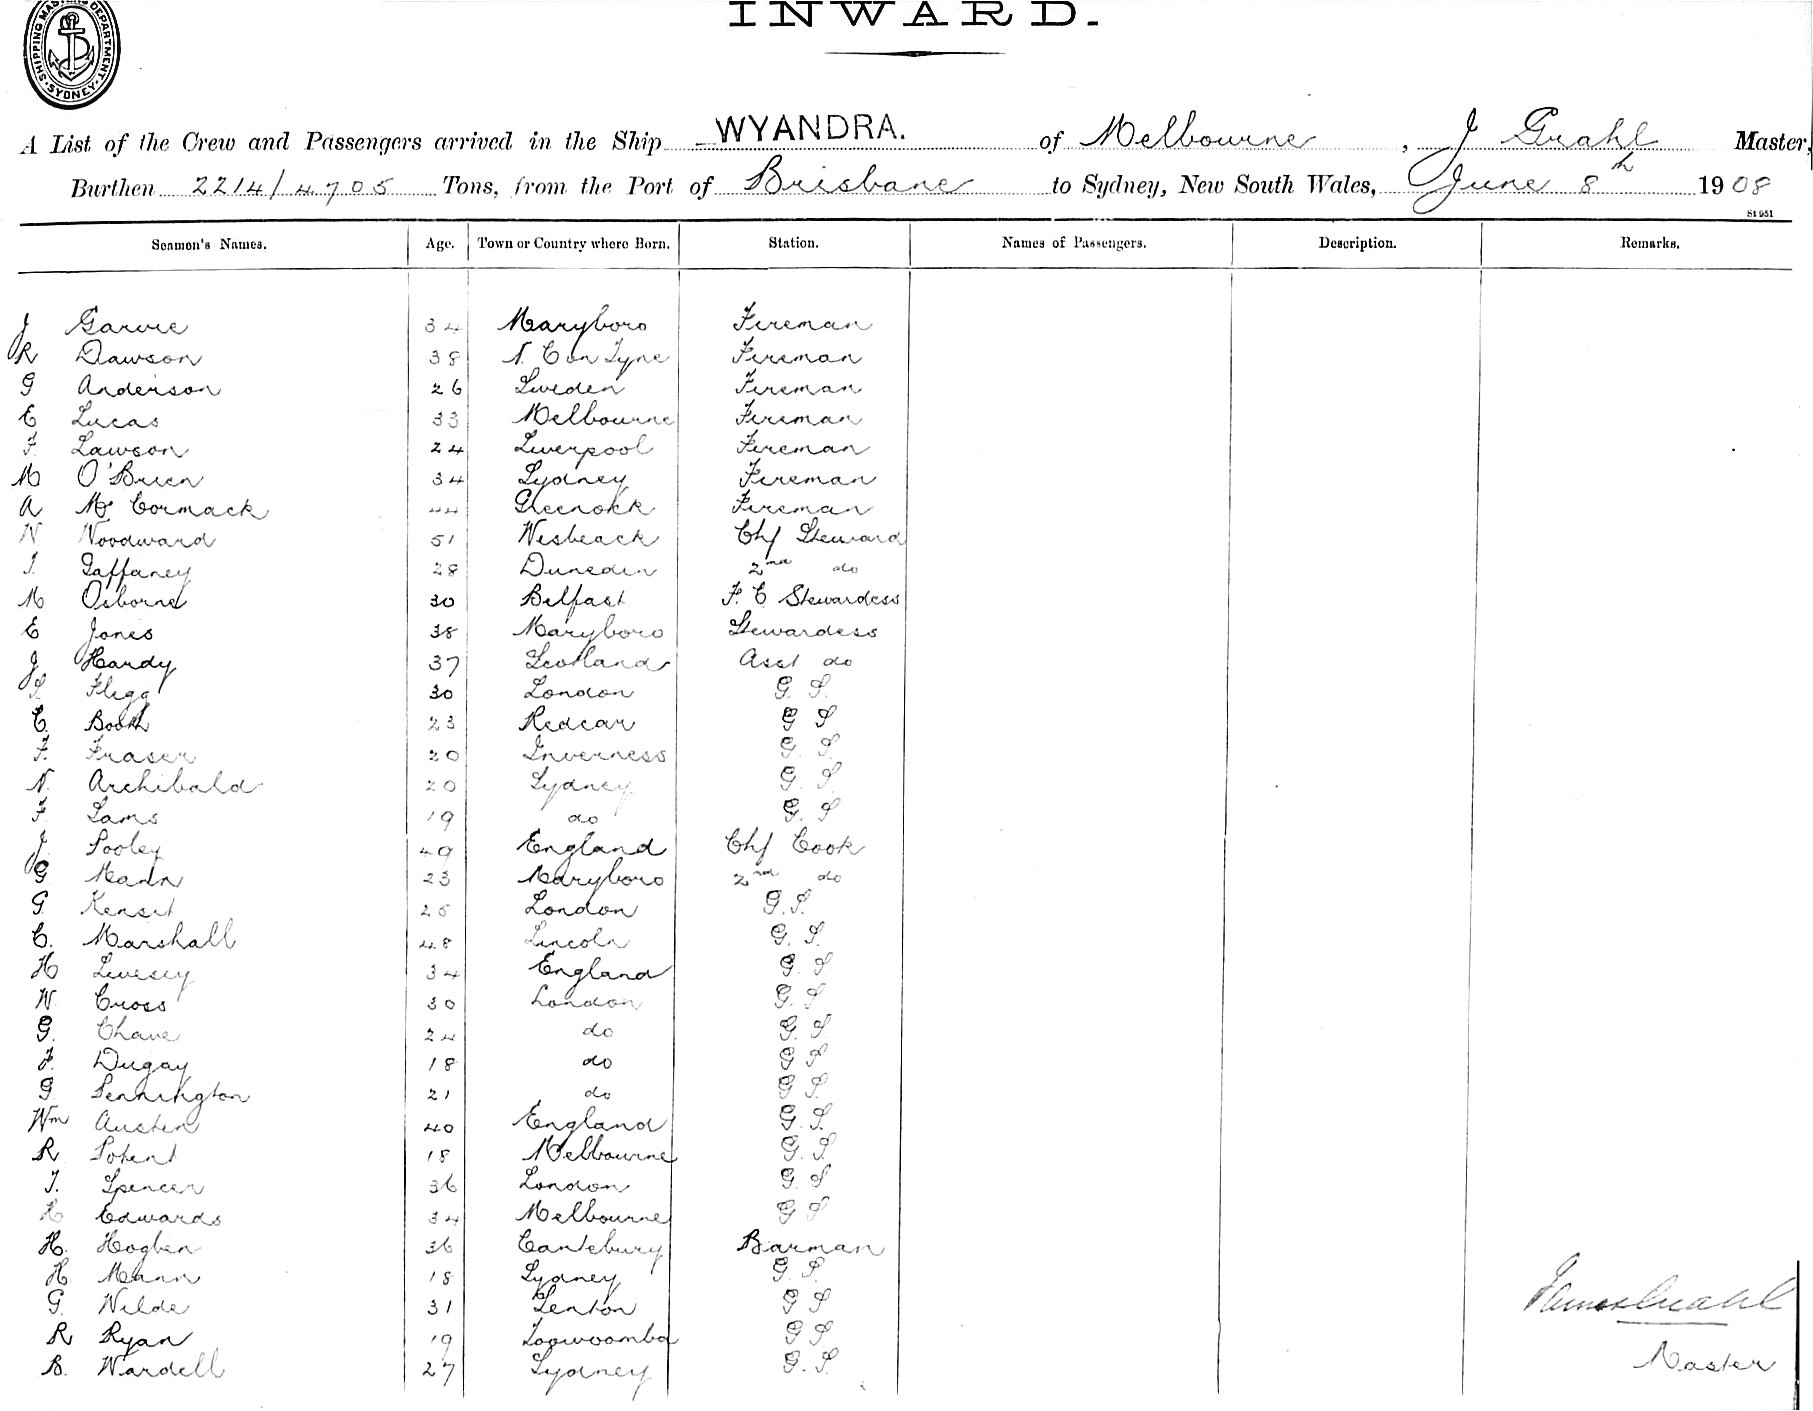 INWARD.
SHIPPING MASTERS DEPARTMENT SYDNEY
A List of the Crew and Passengers arrived in the Ship WYANDRA. of Melbourne, J Grahl Master,
Burthen 2214/4705 Tons, from the Port of Brisbane to Sydney, New South Wales, June 8th 1908
St 951
Seamen's Names. Age. Town or Country where Born. Station. Names of Passengers. Description. Remarks.
J Garvie 34 Maryboro Fireman
R Dawson 38 N. C on Tyne Fireman
G Anderson 26 Sweden Fireman
E Lucas 33 Melbourne Fireman
F. Lawson 24 Liverpool Fireman
M O'Brien 34 Sydney Fireman
A Mc Cormack 44 Greenock Fireman
W Woodward 51 Wesbeack Chf Steward
J. Gaffaney 28 Dunedin 2nd do
M Osborne 30 Belfast F. C Stewardess
E Jones 38 Maryboro Stewardess
J Hardy 37 Scotland Asst do
Flegg 30 London G. S.
C. Booth 23 Redcar G S
F. Fraser 20 Inverness G. S.
N. Archibald 20 Sydney G. S.
F. Sams 19 do G. S
J. Pooley 49 England Chf Cook
G Mann 23 Maryboro 2nd do
G. Kensit 25 London G. S.
C. Marshall 48 Lincoln G. S.
H Livesey 34 England G. S
W. Cross 30 London G. S
G. Chave 24 do G. S
F. Dugay 18 do G S
G Pennington 21 do G S.
Wm Austen 40 England G. S.
R Potent 18 Melbourne G. S
T. Spencer 36 London G. S
H Edwards 34 Melbourne G S
H. Hogben 36 Cantebury Barman
H. Mann 18 Sydney G. S.
G. Wilde 31 Lenton G S
R Ryan 19 Toowoomba G S
B. Wardell 27 Sydney G. S.
James Grahl
Master